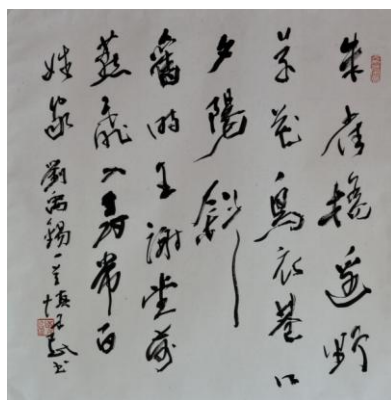 朱雀橋邊野
草花烏衣巷口
夕陽斜
舊時王謝堂前
燕飛入尋常百
姓家 劉禹錫一首 書